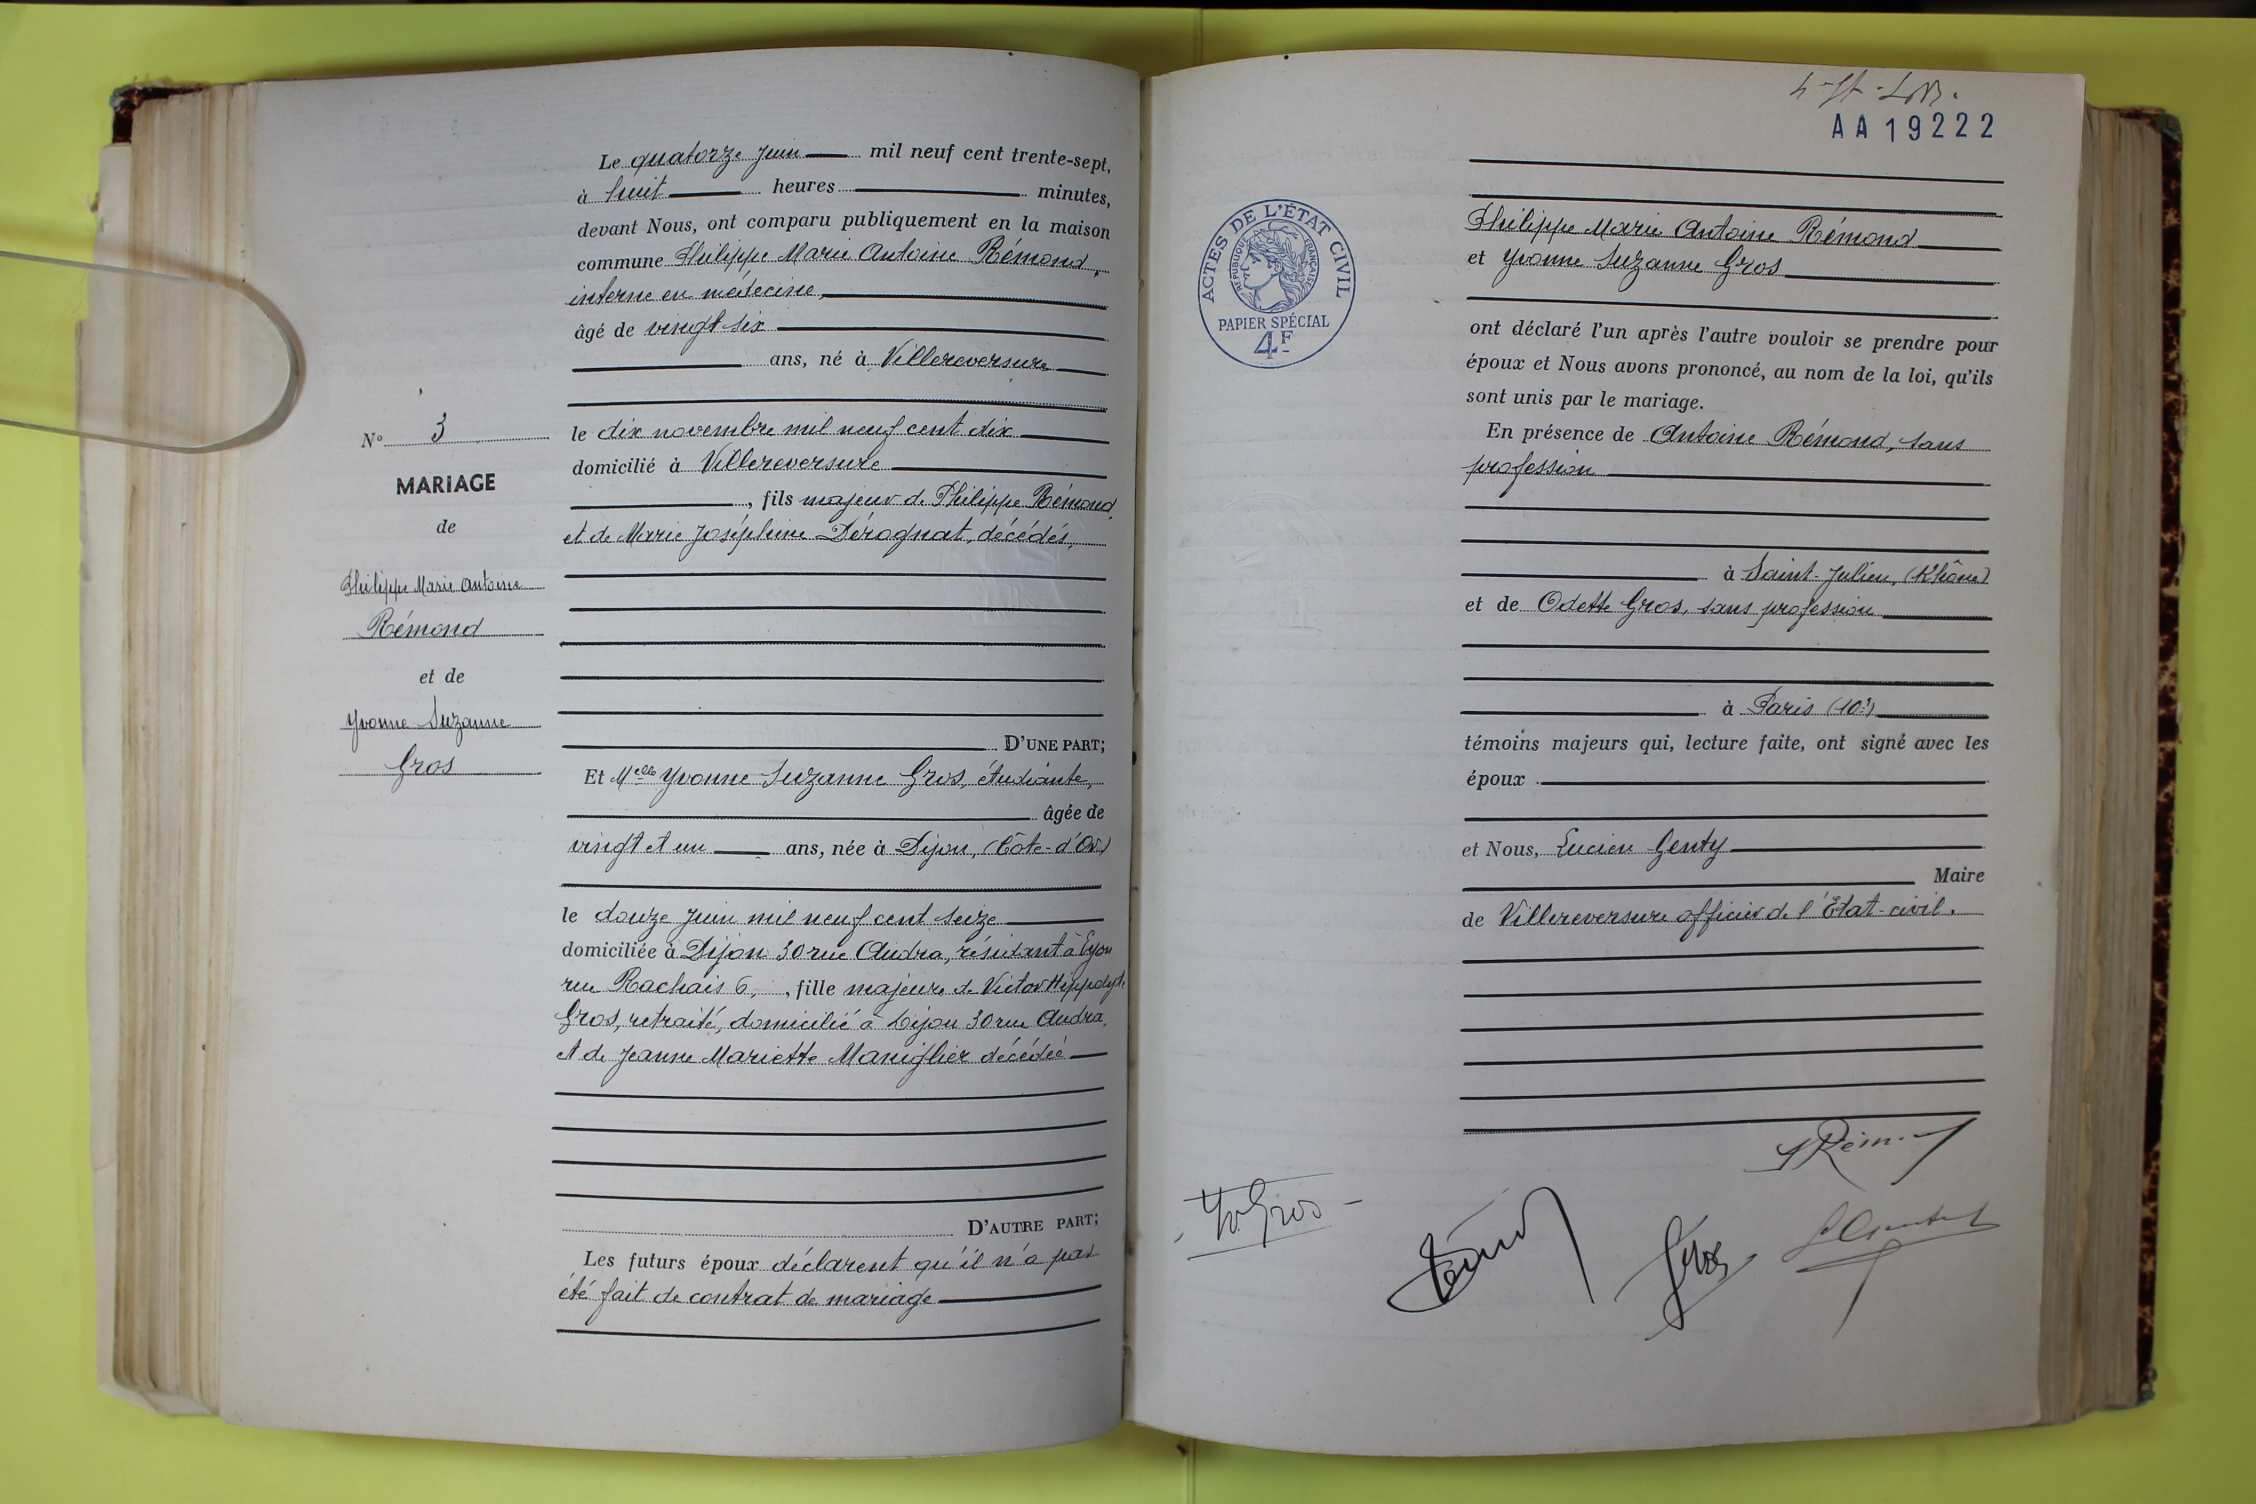 N° 3
MARIAGE
de
Philippe Marie Antoine
Rémond
et de
Yvonne Suzanne
Gros
Le quatorze Juin mil neuf cent trente-sept,
à huit heures minutes,
devant Nous, ont comparu publiquement en la maison
commune Philippe Marie Antoine Rémond,
interne en médecine,
âgé de vingt six
ans, né à Villereversure
le dix novembre mil neuf cent dix
domicilié à Villereversure
, fils majeur de Philippe Rémond,
et de Marie Joséphine Dérognat, décédés,
D'UNE PART;
Et Melle Yvonne Suzanne Gros, étudiante,
âgée de
vingt et un ans, née à Dijon, (Côte-d'Or)
le douze Juin mil neuf cent seize
domiciliée à Dijon 30 rue Audra, résidant à Lyon
rue Rachais 6, , fille majeure de Victor Hippolyte
Gros, retraité, domicilié à Dijon 30 rue Audra,
et de Jeanne Mariette Maniglier décédée
D'AUTRE PART;
Les futurs époux déclarent qu'il n'a pas
été fait de contrat de mariage
AA19222
ACTES DE L'ÉTAT CIVIL
RÉPUBLIQUE FRANÇAISE
PAPIER SPÉCIAL
4F
Philippe Marie Antoine Rémond
et Yvonne Suzanne Gros
ont déclaré l'un après l'autre vouloir se prendre pour
époux et Nous avons prononcé, au nom de la loi, qu'ils
sont unis par le mariage.
En présence de Antoine Rémond, sans
profession
à Saint-Julien, (Rhône)
et de Odette Gros, sans profession
à Paris (10e)
témoins majeurs qui, lecture faite, ont signé avec les
époux
et Nous, Lucien Genty
Maire
de Villereversure officier de l'État-civil.
Yv Gros
Gros